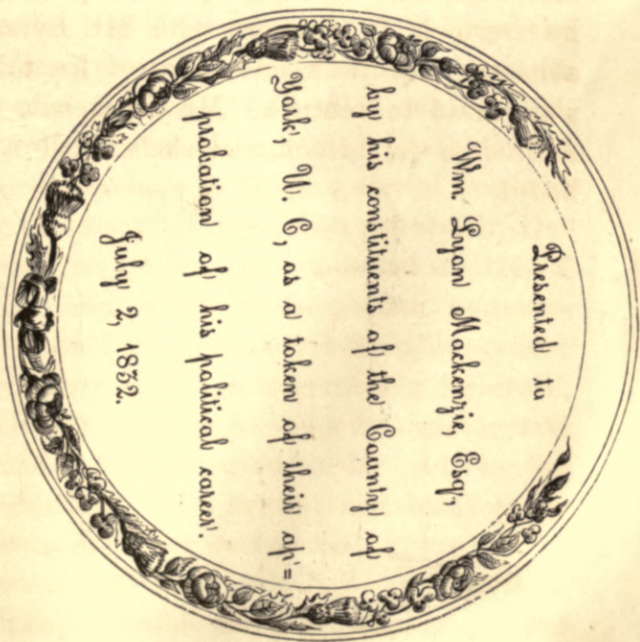 Presented to
Wm. Lyon Mackenzie, Esq,
by his constituents of the County of
York, U. C, as a token of their ap=
probation of his political career.
July 2, 1832.